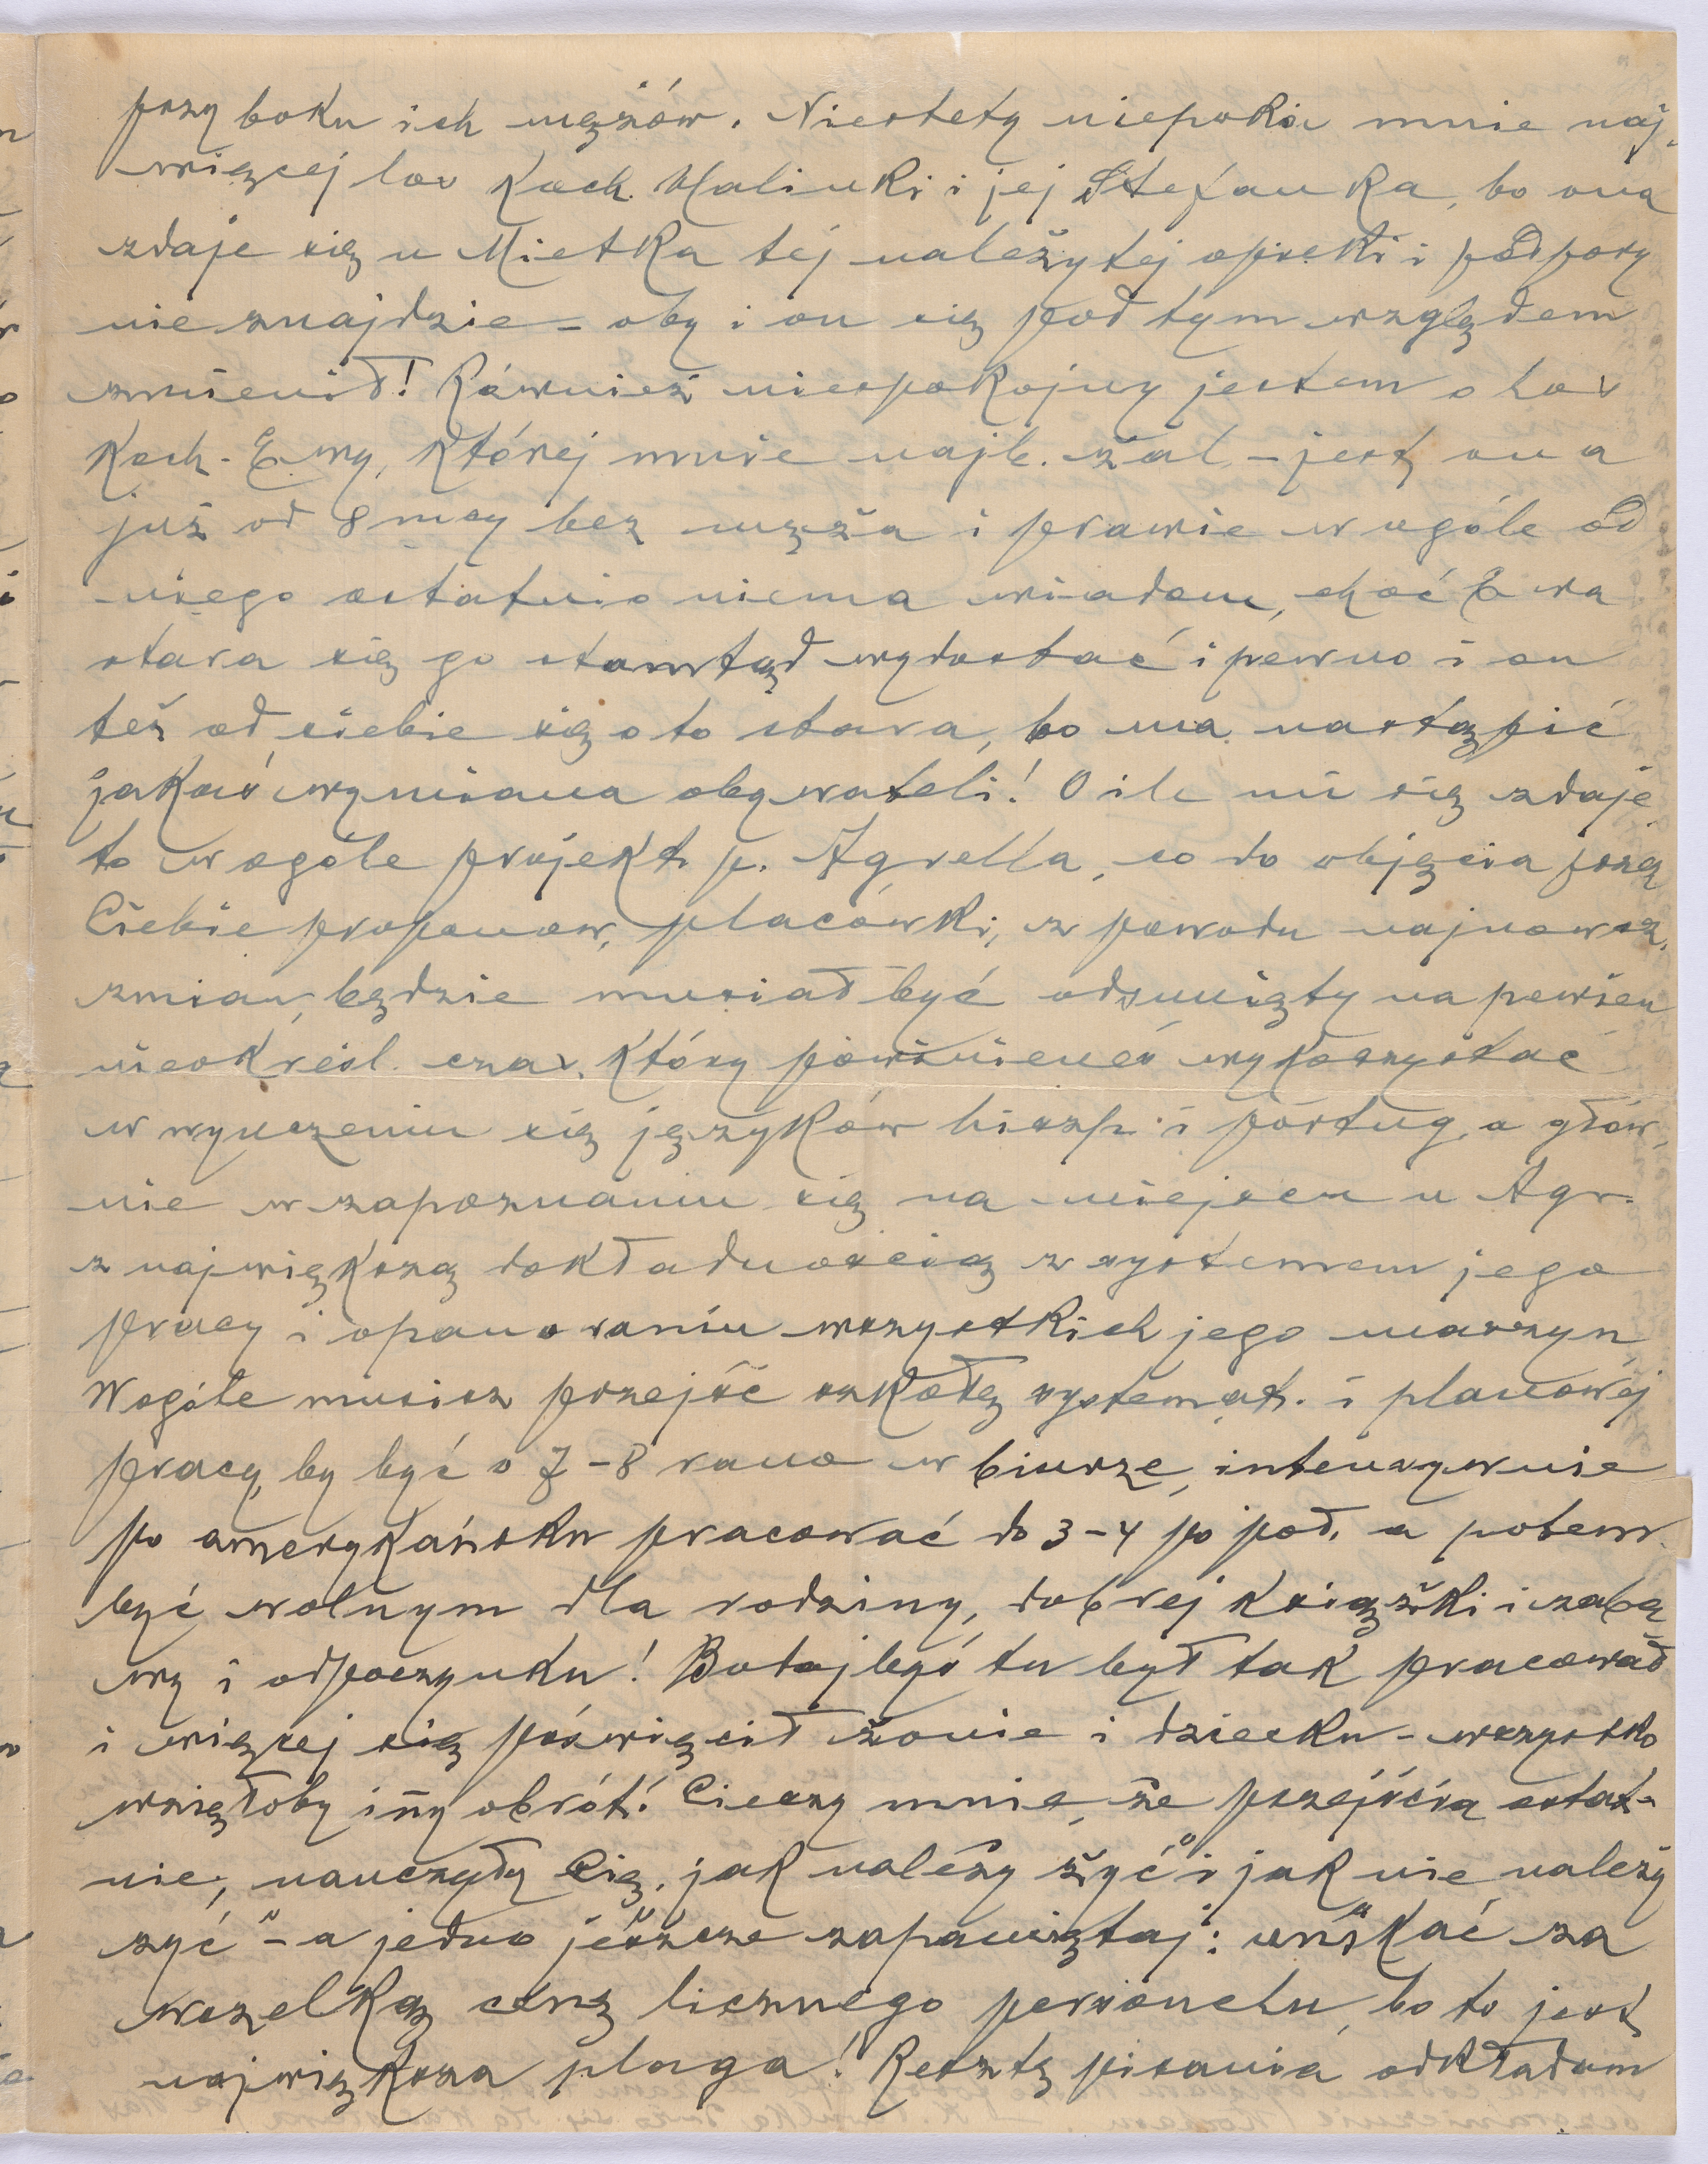 przy boku ich mężów. Niestety niepokoi mnie naj-
więcej los Koch. Halinki i jej Stefanka, bo ona
zdaje się u Mietka tej należytej opieki i podpory
nie znajdzie – oby i on się pod tym względem
zmienił! Również niespokojny jestem o los
Koch. Ewy, której mnie najb. żal – jest ona
już od 8 mcy bez męża i prawie w ogóle od
niego ostatnio niema wiadom, choć Ewa
stara się go stamtąd wydostać i pewno i on
też od siebie się o to stara, bo ma nastąpić
jakaś wymiana obywateli! O ile mi się zdaje
to w ogóle projekt p. Agrella, co do objęcia przez
Ciebie proponow, placówki, z powodu najnowsz.
zmian, będzie musiał być odsunięty na pewien
nieokreśl. czas, który powinieneś wykorzystać
w wyuczeniu się języków hiszp. i portug, a głów,
nie w zapoznaniu się na miejscu u Agr.
z największą dokładnością z systemem jego
pracy i opanowaniu wszystkich jego maszyn
Wogóle musisz przejść szkołę systemat. i planowej
pracy, by być o 7–8 rano w biurze, intenzywnie
po amerykańsku pracować do 3–4 po poł, a potem
być wolnym dla rodziny, dobrej książki i zaba
wy i odpoczynku! Bodajbyś tu był tak pracował
i więcej się poświęcił żonie i dziecku – wszystko
wzięłoby inny obrót! Cieszy mnie, że przejścia ostat-
nie, nauczyły Cię, jak należy żyć" i jak nie należy
żyć" – a jedno jeszcze zapamiętaj: unikać za
wszelką cenę licznego personelu, bo to jest
największa plaga! Resztę pisania odkładam